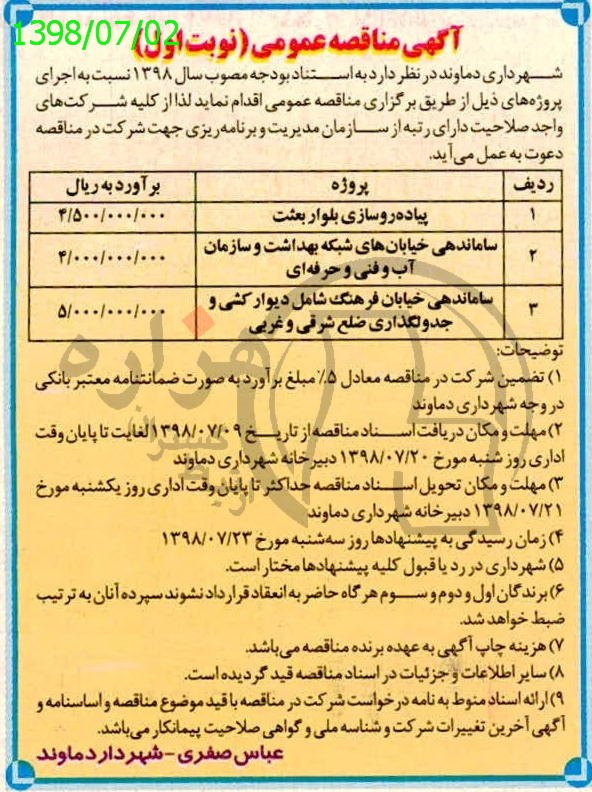 1398/07/02
آگهی مناقصه عمومی (نوبت اول)
شهرداری دماوند در نظر دارد به استناد بودجه مصوب سال ۱۳۹۸ نسبت به اجرای
پروژه‌های ذیل از طریق برگزاری مناقصه عمومی اقدام نماید لذا از کلیه شرکت‌های
واجد صلاحیت دارای رتبه از سازمان مدیریت و برنامه‌ریزی جهت شرکت در مناقصه
دعوت به عمل می‌آید.
ردیف پروژه برآورد به ریال
۱ پیاده‌روسازی بلوار بعثت ۴/۵۰۰/۰۰۰/۰۰۰
۲ ساماندهی خیابان‌های شبکه بهداشت و سازمان ۴/۰۰۰/۰۰۰/۰۰۰
آب و فنی و حرفه‌ای
۳ ساماندهی خیابان فرهنگ شامل دیوارکشی و ۵/۰۰۰/۰۰۰/۰۰۰
جدولگذاری ضلع شرقی و غربی
توضیحات:
۱) تضمین شرکت در مناقصه معادل ۵٪ مبلغ برآورد به صورت ضمانتنامه معتبر بانکی
در وجه شهرداری دماوند
۲) مهلت و مکان دریافت اسناد مناقصه از تاریخ ۱۳۹۸/۰۷/۰۹ لغایت تا پایان وقت
اداری روز شنبه مورخ ۱۳۹۸/۰۷/۲۰ دبیرخانه شهرداری دماوند
۳) مهلت و مکان تحویل اسناد مناقصه حداکثر تا پایان وقت اداری روز یکشنبه مورخ
۱۳۹۸/۰۷/۲۱ دبیرخانه شهرداری دماوند
۴) زمان رسیدگی به پیشنهادها روز سه‌شنبه مورخ ۱۳۹۸/۰۷/۲۳
۵) شهرداری در رد یا قبول کلیه پیشنهادها مختار است.
۶) برندگان اول و دوم و سوم هرگاه حاضر به انعقاد قرارداد نشوند سپرده آنان به ترتیب
ضبط خواهد شد.
۷) هزینه چاپ آگهی به عهده برنده مناقصه می‌باشد.
۸) سایر اطلاعات و جزئیات در اسناد مناقصه قید گردیده است.
۹) ارائه اسناد منوط به نامه درخواست شرکت در مناقصه با قید موضوع مناقصه و اساسنامه و
آگهی آخرین تغییرات شرکت و شناسه ملی و گواهی صلاحیت پیمانکار می‌باشد.
عباس صفری - شهردار دماوند
هزاره